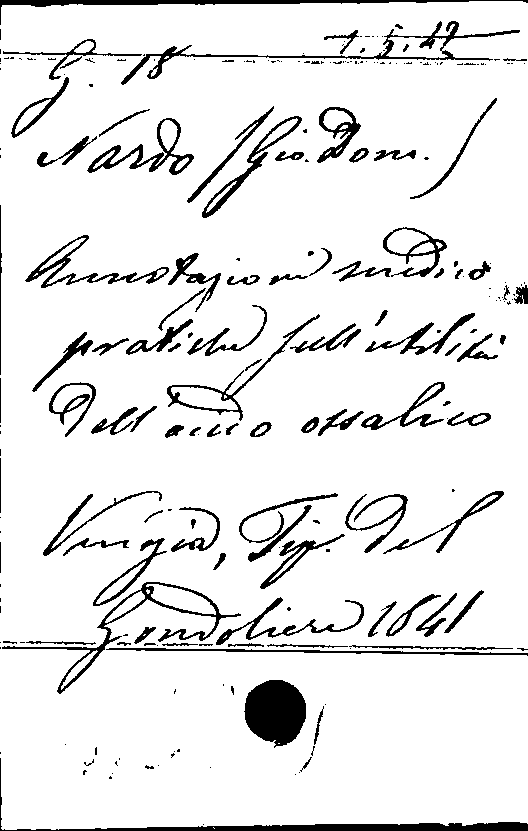 1.5.42
G. 18
Nardo (Gio. Dom.)
Annotazioni medico
pratiche sull'utilità
dell'acido ossalico
Venezia, Tip. del
Gondoliere 1841